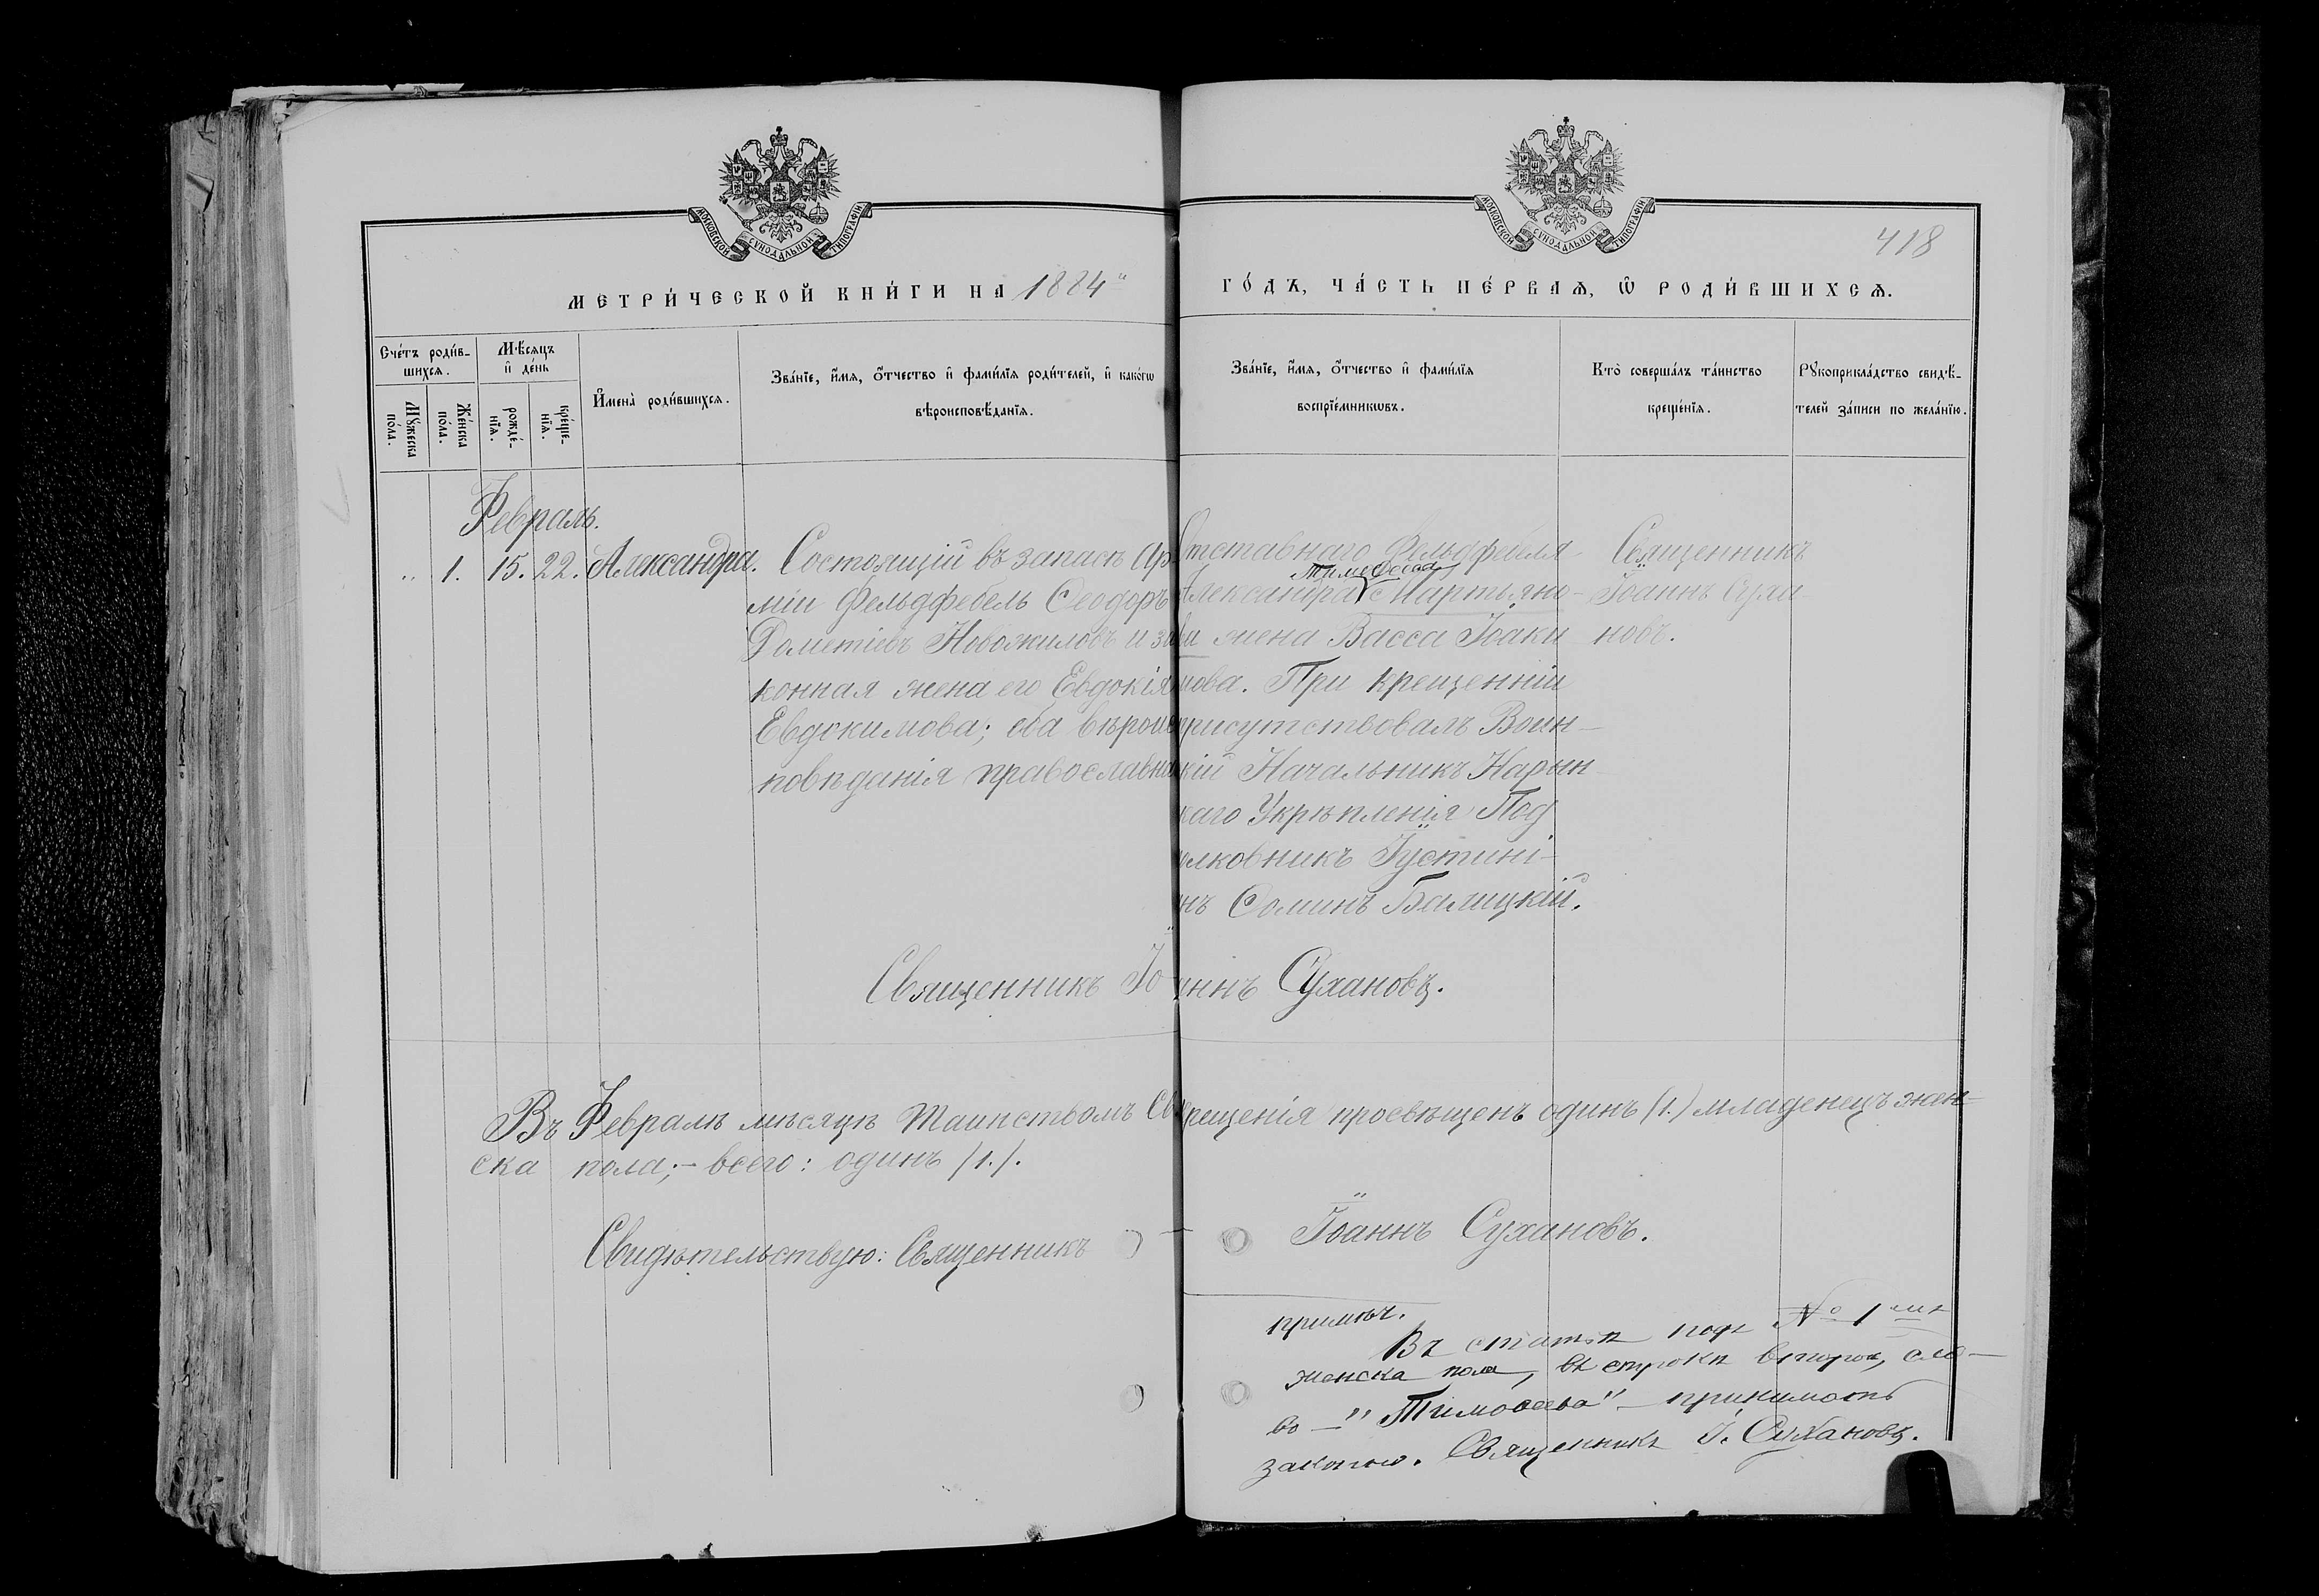 МОСКОВСКОЙ СѴНОДАЛЬНОЙ ТИПОГРАФІИ
МОСКОВСКОЙ СѴНОДАЛЬНОЙ ТИПОГРАФІИ
418
МЕТРИ́ЧЕСКОЙ КНИ́ГИ НА 1884
ГО́ДЪ, ЧА́СТЬ ПЕ́РВАѦ, Ѿ РОДИ́ВШИХСѦ.
Сче́тъ роди́в-
шихсѧ.
Мꙋ́жеска по́ла.
Же́нска по́ла.
Мѣ́сѧцъ
и҆ де́нь
рожде́-нїѧ.
креще́-нїѧ.
И҆мена̀ роди́вшихсѧ.
Зва́нїе, и҆́мѧ, ѻ҆́тчество и҆ фами́лїѧ роди́телей, и҆ како́гѡ
вѣроисповѣ́данїѧ.
Зва́нїе, и҆́мѧ, ѻ҆́тчество и҆ фами́лїѧ
воспрїе́мникѡвъ.
Кто̀ соверша́лъ та́инство
креще́нїѧ.
Рꙋкоприкла́дство свидѣ́-
телей за́писи по жела́нїю.
Февраль.
" 1. 15. 22. Александра.
Состоящій въ запасѣ Ар
міи Фельдфебель Ѳеодоръ
Дометіевъ Новожиловъ и за
конная жена его Евдокія
Евдокимова; оба вѣроис
повѣданія православна
Отставнаго Фельдфебеля
Тимоѳеева
Александра Мартьяно-
ва жена Васса Іоаки
мова. При крещеніи
присутствовалъ Воин-
кій Начальникъ Нарын
каго Укрѣпленія Под
олковникъ Іустині-
нъ Ѳоминъ Балицкій.
Священникъ
Іоаннъ Суха
новъ.
Священникъ Іоаннъ Сухановъ.
Въ Февралѣ мѣсяцѣ таинствомъ Св. крещенія просвѣщенъ одинъ (1.) младенецъ жен-
ска пола; - всего: одинъ /1./.
Свидѣтельствую: Священникъ Іоаннъ Сухановъ.
примѣч.
Въ статьѣ подъ № 1мъ
женска пола, въ строкѣ второй, сло-
во - "Тимоѳеева" - принимать
закономъ. Священникъ І. Сухановъ.